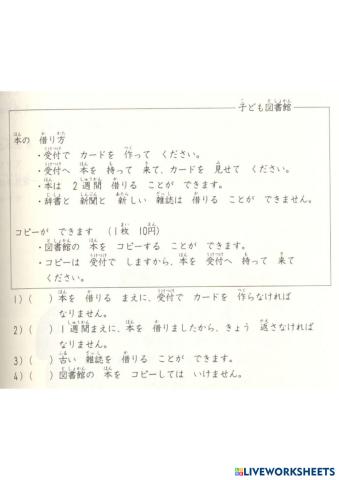 子ども図書館
本の 借り方
・受付で カードを 作って ください。
・受付へ 本を 持って 来て、カードを 見せて ください。
・本は 2週間 借りる ことが できます。
・辞書と 新聞と 新しい 雑誌は 借りる ことが できません。
コピーが できます (1枚 10円)
・図書館の 本を コピーする ことが できます。
・コピーは 受付で しますから、本を 受付へ 持って 来て
ください。
1) ( ) 本を 借りる まえに、受付で カードを 作らなければ
なりません。
2) ( ) 1週間まえに、本を 借りましたから、きょう 返さなければ
なりません。
3) ( ) 古い 雑誌を 借りる ことが できます。
4) ( ) 図書館の 本を コピーしては いけません。
LIVEWORKSHEETS